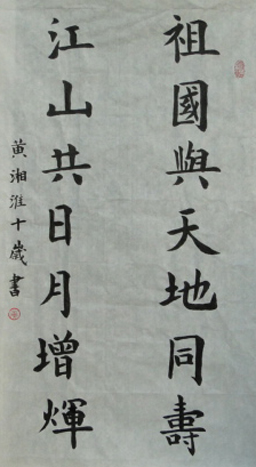 祖國與天地同壽
江山共日月增輝
黃湘淮十歲書